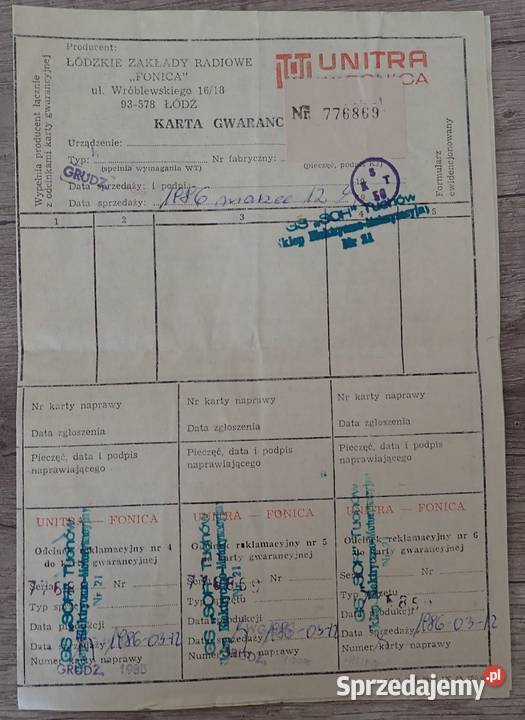 Producent:
ŁÓDZKIE ZAKŁADY RADIOWE
„FONICA"
ul. Wróblewskiego 16/18
93-578 ŁÓDŹ
UNITRA
FONICA
KARTA GWARANC
Nr 776869
Wypełnia producent łącznie
z odcinkami karty gwarancyjnej
Urządzenie:
Typ:
Nr fabryczny:
(spełnia wymagania WT)
(pieczęć, podpis KJ)
Formularz
ewidencjonowany
GRUDZ.
Data sprzedaży: i podpi
Data sprzedaży: 1986 marzec 12
GS „SCH" Tuchów
Sklep Elektryczno-Motoryzacyjny
Nr 21
1 2 3 4 5
Nr karty naprawy
Data zgłoszenia
Pieczęć, data i podpis
naprawiającego
Nr karty naprawy
Data zgłoszenia
Pieczęć, data i podpis
naprawiającego
Nr karty naprawy
Data zgłoszenia
Pieczęć, data i podpis
naprawiającego
UNITRA — FONICA
Odcinek reklamacyjny nr 4
do karty gwarancyjnej
Nr
Typ
Data
Data sprzedaży 1986-03-12
Numer karty naprawy
GRUDZ. 1985
UNITRA — FONICA
Odcinek reklamacyjny nr 5
karty gwarancyjnej
Nr
Data sprzedaży 1986-03-12
Numer karty naprawy
UNITRA — FONICA
Odcinek reklamacyjny nr 6
karty gwarancyjnej
Nr
Data produkcji
Data sprzedaży 1986-03-12
Numer karty naprawy
GS „SCH" Tuchów
Sklep Elektryczno-Motoryzacyjny
Nr 21
GS „SCH" Tuchów
Sklep Elektryczno-Motoryzacyjny
Nr 21
GS „SCH" Tuchów
Sklep Elektryczno-Motoryzacyjny
Sprzedajemy.pl